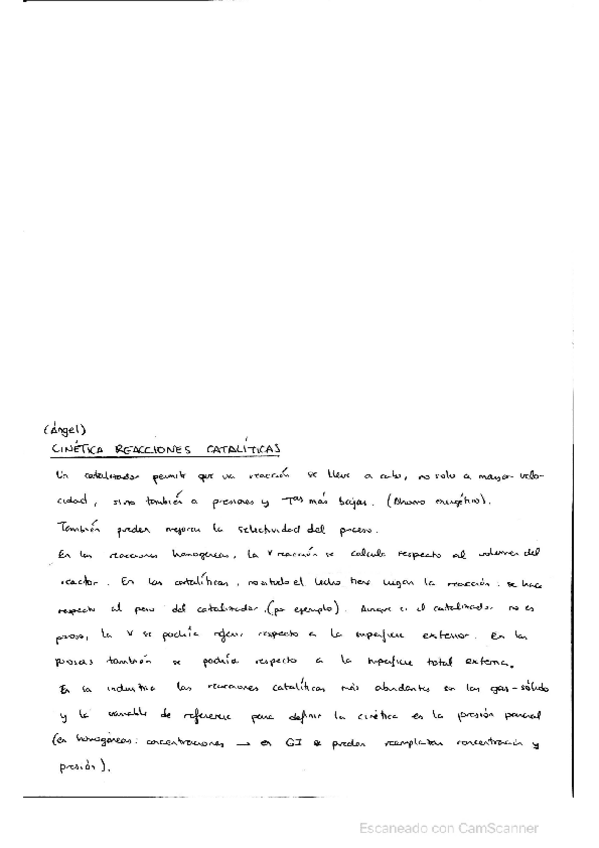 (Ángel)
CINÉTICA REACCIONES CATALÍTICAS
Un catalizador permite que una reacción se lleve a cabo, no solo a mayor velo-
cidad, sino también a presiones y Tas más bajas. (Ahorro energético).
También pueden mejorar la selectividad del proceso.
En las reacciones homogéneas, la v reacción se calcula respecto al volumen del
reactor. En las catalíticas, no todo el lecho tiene lugar la reacción: se hace
respecto al peso del catalizador, (por ejemplo). Aunque si el catalizador no es
poroso, la v se podría referir respecto a la superficie exterior. En las
porosas también se podría respecto a la superficie total externa.
En la industria las reacciones catalíticas más abundantes son las gas-sólido
y la variable de referencia para definir la cinética es la presión parcial
(en homogéneas: concentraciones → en GI se pueden reemplazar concentración y
presión).
Escaneado con CamScanner